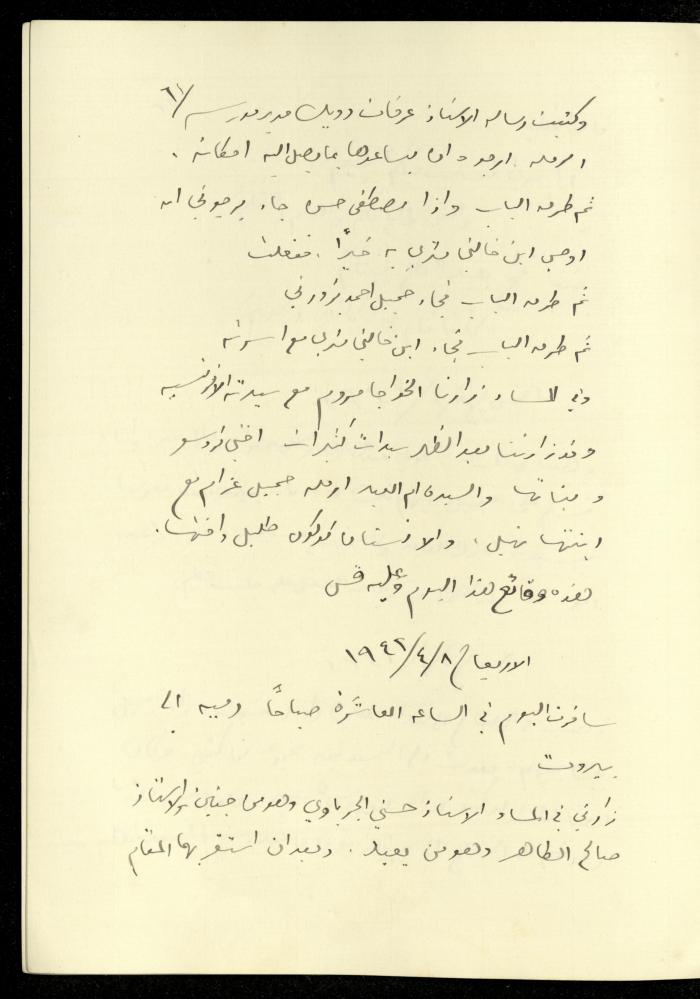 ٦١/
وكتبت رساله الاستاذ عرفات دويك مدير مدرسة
الرمله ارجوه ان يساعدها بما يصل اليه امكانه .
ثم طرق الباب واذا مصطفى حسن جاء يرجوني ان
اوصي ابن خالتي بتري به خيرًا . ففعلت
ثم طرق الباب فجاء جميل احمد يزورني
ثم طرق الباب فجاء ابن خالتي بتري مع اسرته
وفي المساء زارنا الخواجا مع سيدته الافرنسيه
وقد زارتنا بعد الظهر سيدات كثيرات اختي
وبناتها والسيده ام العبد ارمله جميل عزام مع
ابنتها نهيل . والانستان كوكون طليل واختها .
هذه وقائع هذا اليوم وعليه قس
الاربعاء ٨/٤/١٩٤٢
سافرت اليوم في الساعه العاشرة صباحًا وميه الى
بيروت
زارني في المساء الاستاذ حسني الجرباوي وهو من جنين والاستاذ
صالح الطاهر وهو من يعبد . وبعد ان استقر بهما المقام